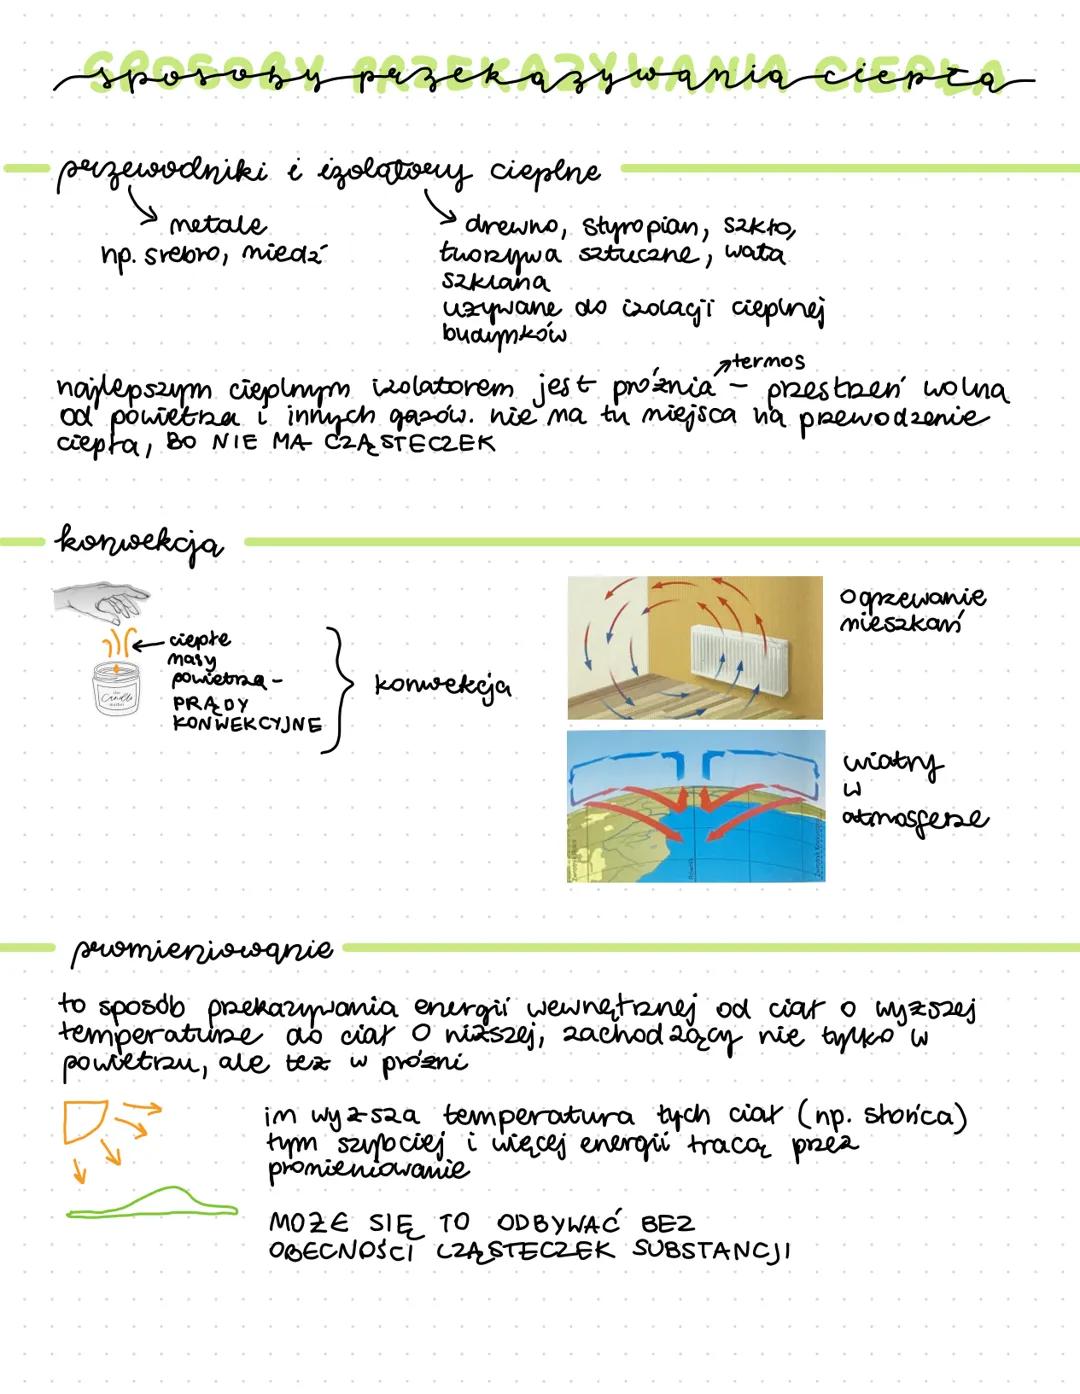 SPOSOBY PRZEKAZYWANIA CIEPŁA
sposoby przekazywania ciepła
przewodniki i izolatory cieplne
metale
np. srebro, miedź
drewno, styropian, szkło,
tworzywa sztuczne, wata
szklana
używane do izolacji cieplnej
budynków
termos
najlepszym cieplnym izolatorem jest próżnia - przestrzeń wolna
od powietrza i innych gazów. nie ma tu miejsca na przewodzenie
ciepła, BO NIE MA CZĄSTECZEK
konwekcja
ciepłe
masy
powietrza -
PRĄDY
KONWEKCYJNE
konwekcja
Candle
ogrzewanie
mieszkań
wiatry
w
atmosferze
Równik
promieniowanie
to sposób przekazywania energii wewnętrznej od ciał o wyższej
temperaturze do ciał o niższej, zachodzący nie tylko w
powietrzu, ale też w próżni
im wyższa temperatura tych ciał (np. słońca)
tym szybciej i więcej energii tracą przez
promieniowanie
MOŻE SIĘ TO ODBYWAĆ BEZ
OBECNOŚCI CZĄSTECZEK SUBSTANCJI